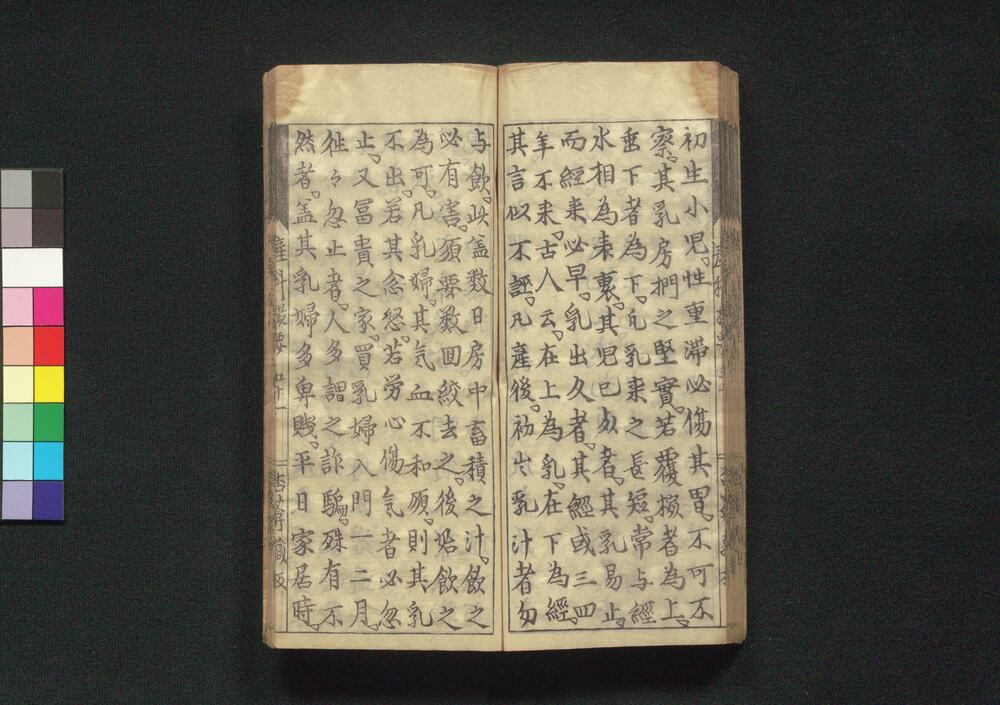 初生小児。性重滞必傷其胃。不可不
察。其乳房捫之堅實。若覆椀者為上。
垂下者為下。凡乳来之長短。常与經
水相為表裏。其児已死者。其乳易止。
而經来必早。乳出久者。其經或三四
年不来。古人云。在上為乳。在下為經。
其言似不誣。凡産後。初出乳汁者勿
与飲。此盖数日房中畜積之汁。飲之
必有害。須要数回絞去之。後始飲之
為可。凡乳婦。其気血不和順。則其乳
不出。若其忿怒。若労心傷気者必忽
止。又冨貴之家。買乳婦入門一二月。
徃々忽止者。人多謂之詐騙。殊有不
然者。盖其乳婦多卑賎。平日家居時。
産科撮要